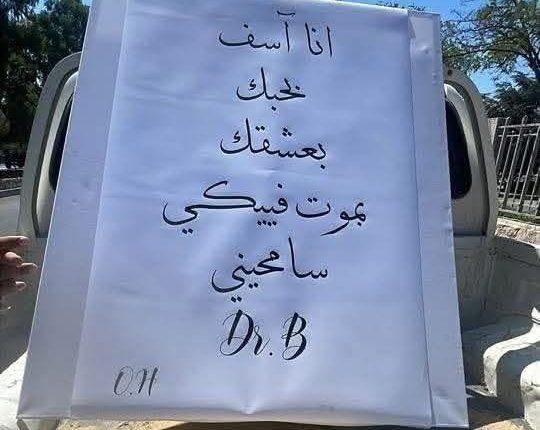 انا آسف
بحبك
بعشقك
بموت فييكي
سامحيني
Dr. B
O.H